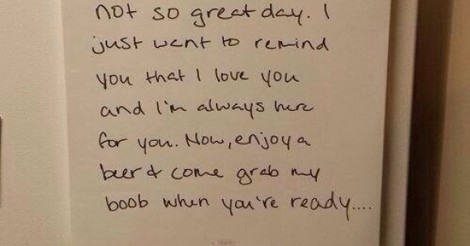 not so great day. I
just want to remind
you that I love you
and I'm always here
for you. Now, enjoy a
beer & come grab my
boob when you're ready....